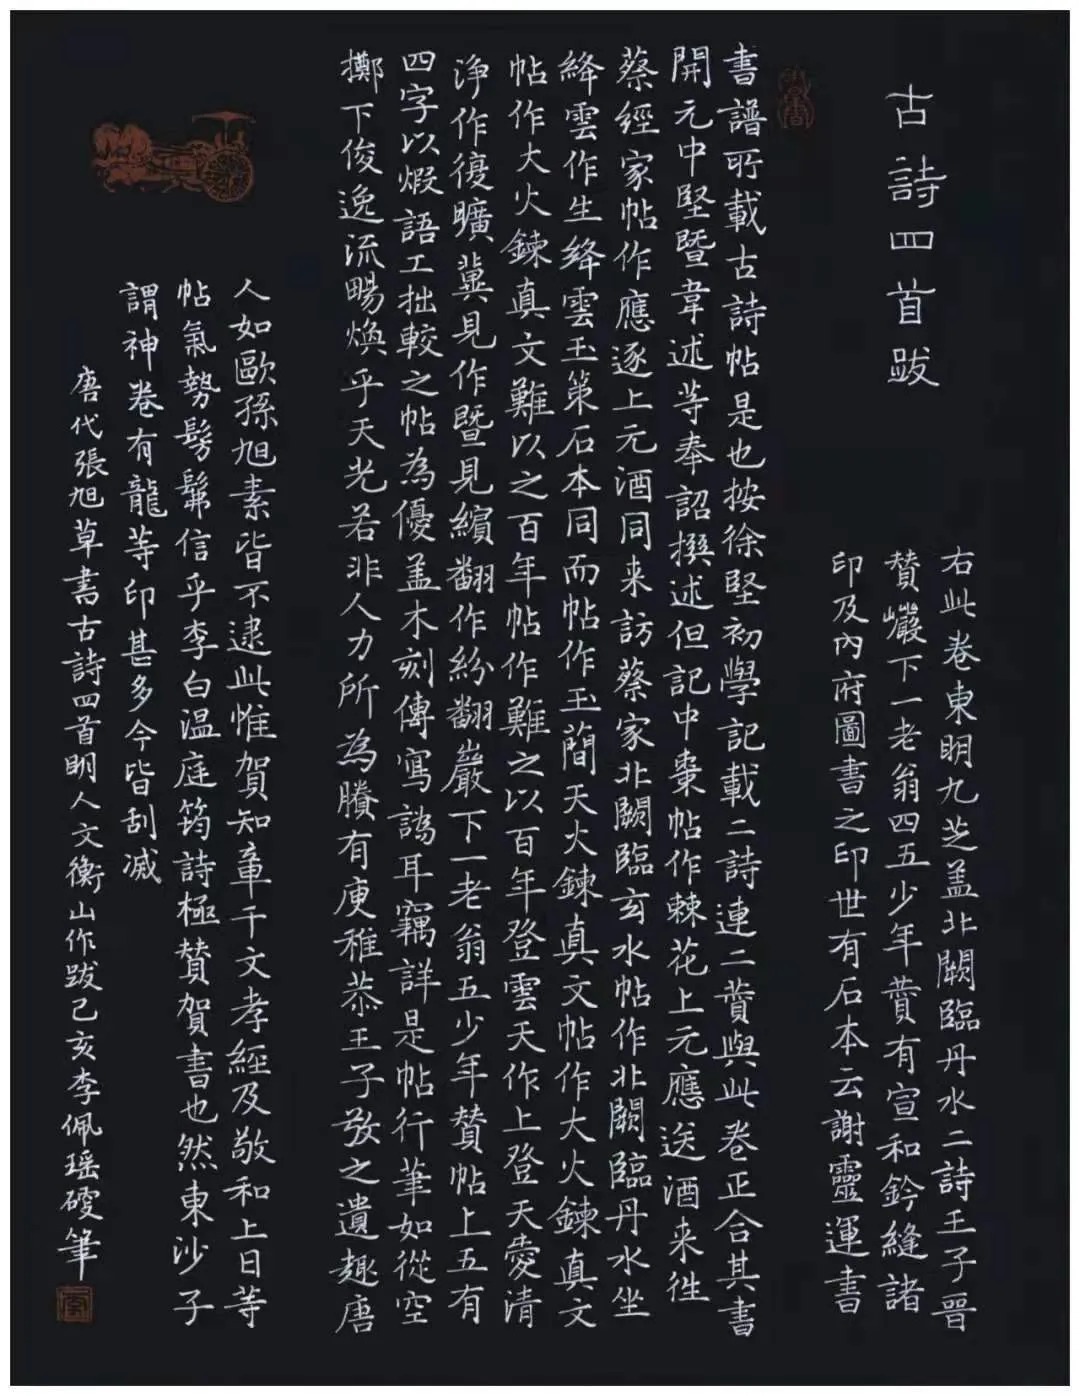 古詩四首跋
右此卷東明九芝盖北闕臨丹水二詩王子晋
賛巗下一老翁四五少年賛有宣和鈐縫諸
印及內府圖書之印世有石本云謝靈運書
書譜所載古詩帖是也按徐堅初學記載二詩連二賛與此卷正合其書
開元中堅暨韋述等奉詔撰述但記中棗帖作棘花上元應送酒来徃
蔡經家帖作應逐上元酒同来訪蔡家北闕臨玄水帖作北闕臨丹水坐
絳雲作生絳雲玉策石本同而帖作玉蕳天火鍊真文帖作大火鍊真文
帖作大火鍊真文難以之百年帖作難之以百年登雲天作上登天憂清
淨作復曠冀見作暨見繽翻作紛翻巖下一老翁五少年賛帖上五有
四字以煆語工拙較之帖為優盖木刻傳寫譌耳竊詳是帖行筆如從空
擲下俊逸流暢煥乎天光若非人力所為賸有庾稚恭王子敬之遺趣唐
人如歐孫旭素皆不逮此惟賀知章千文孝經及敬和上日等
帖氣勢髣髴信乎李白温庭筠詩極賛賀書也然東沙子
謂神卷有龍等印甚多今皆刮滅
唐代張旭草書古詩四首明人文衡山作跋己亥李佩瑶硬筆